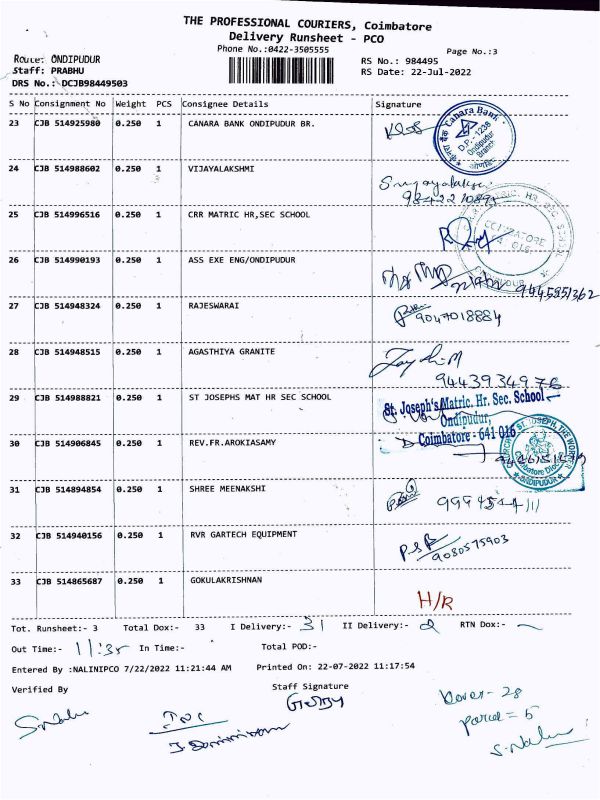 THE PROFESSIONAL COURIERS, Coimbatore
Delivery Runsheet - PCO
Phone No.:0422-3505555
Page No.:3
Route: ONDIPUDUR
Staff: PRABHU
DRS No.: DCJB98449503
RS No.: 984495
RS Date: 22-Jul-2022
S No Consignment No Weight PCS Consignee Details Signature
23 CJB 514925980 0.250 1 CANARA BANK ONDIPUDUR BR.
Canara Bank
D.P.-1238
Ondipudur
Branch
24 CJB 514988602 0.250 1 VIJAYALAKSHMI
25 CJB 514996516 0.250 1 CRR MATRIC HR,SEC SCHOOL
MATRIC. HR. SEC. SCHOOL
COIMBATORE
26 CJB 514990193 0.250 1 ASS EXE ENG/ONDIPUDUR
9445851362
27 CJB 514948324 0.250 1 RAJESWARAI
9047018884
28 CJB 514948515 0.250 1 AGASTHIYA GRANITE
9443934976
29 CJB 514988821 0.250 1 ST JOSEPHS MAT HR SEC SCHOOL
St. Joseph's Matric. Hr. Sec. School
Ondipudur,
Coimbatore - 641 016
30 CJB 514906845 0.250 1 REV.FR.AROKIASAMY
ST. JOSEPH, THE WORKER
Coimbatore Dioc
ONDIPUDUR
31 CJB 514894854 0.250 1 SHREE MEENAKSHI
32 CJB 514940156 0.250 1 RVR GARTECH EQUIPMENT
9080575903
33 CJB 514865687 0.250 1 GOKULAKRISHNAN
H/R
Tot. Runsheet:- 3 Total Dox:- 33 I Delivery:- 31 II Delivery:- 2 RTN Dox:-
Out Time:- 11:35 In Time:- Total POD:-
Entered By :NALINIPCO 7/22/2022 11:21:44 AM Printed On: 22-07-2022 11:17:54
Verified By Staff Signature
Cover - 28
Parcel = 5
S. Nalini